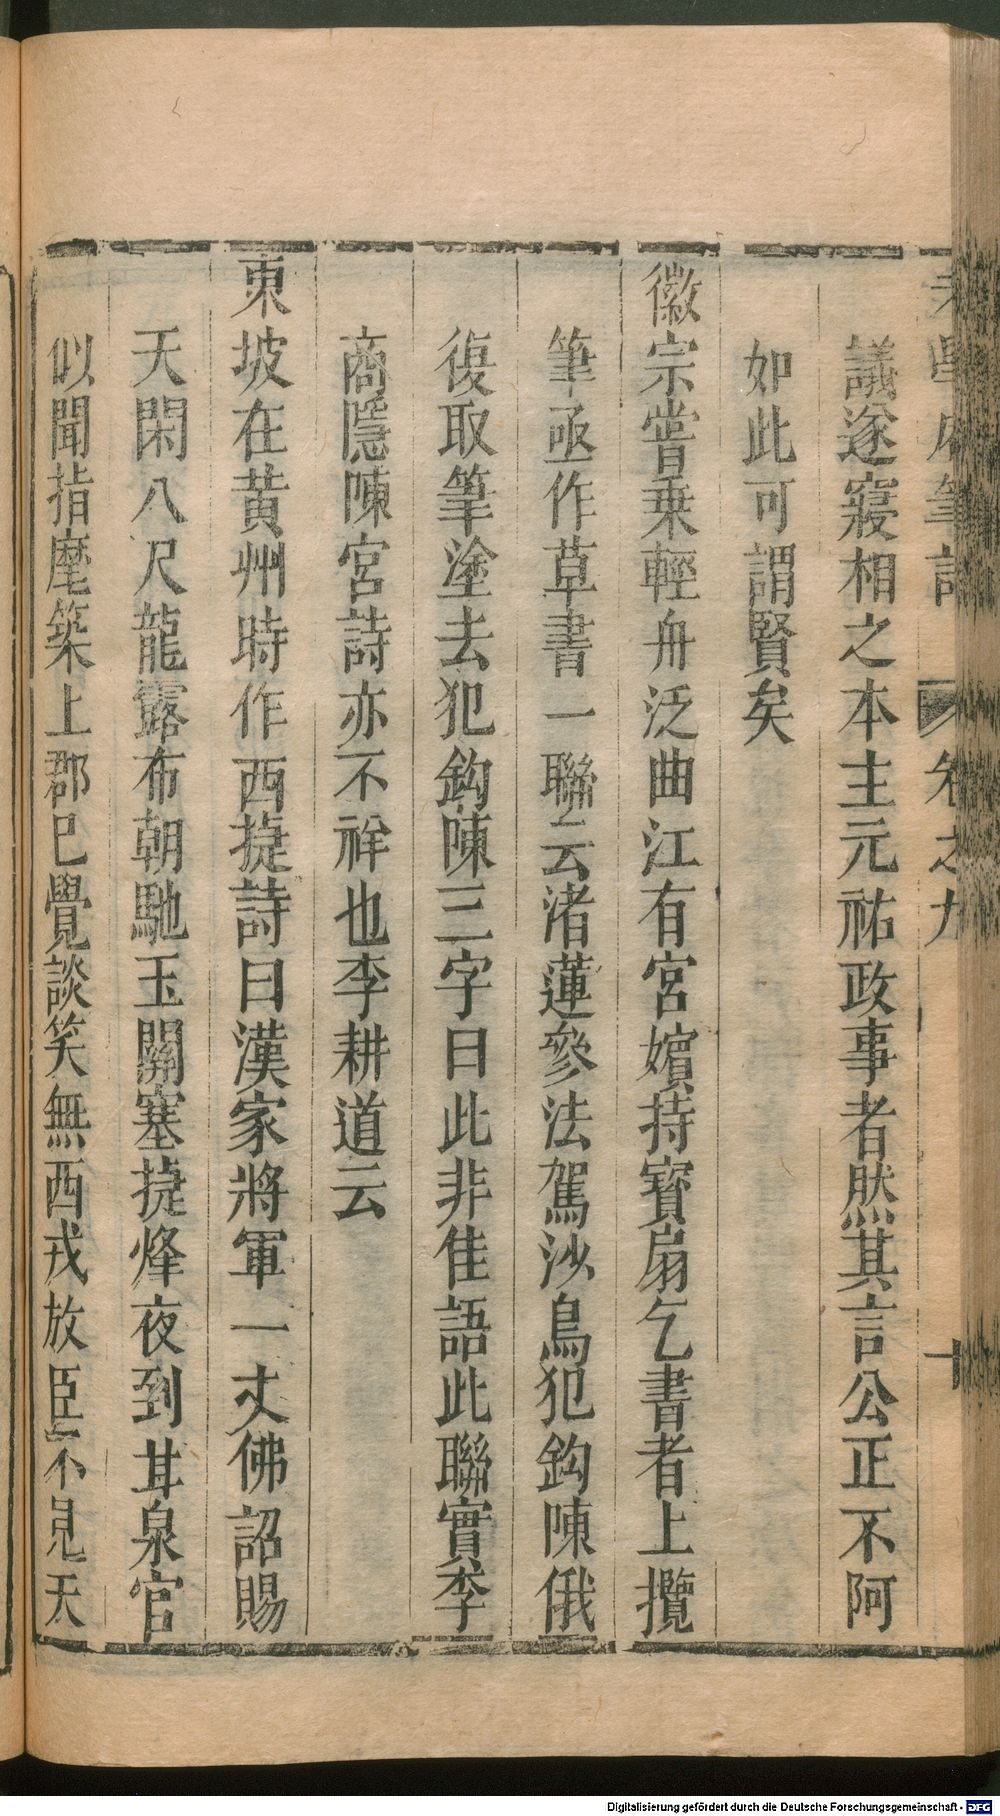 老學庵筆記 卷之九 十
議遂寢相之本主元祐政事者然其言公正不阿
如此可謂賢矣
徽宗嘗乗輕舟泛曲江有宮嬪持寶扇乞書者上攬
筆亟作草書一聯云渚蓮參法駕沙鳥犯鈎陳俄
復取筆塗去犯鈎陳三字曰此非佳語此聯實李
商隱陳宮詩亦不祥也李耕道云
東坡在黄州時作西㨗詩曰漢家將軍一丈佛詔賜
天閑八尺龍露布朝馳玉關塞㨗烽夜到甘泉宫
似聞指麾築上郡巳覺談笑無西戎放臣不見天
Digitalisierung gefördert durch die Deutsche Forschungsgemeinschaft - DFG